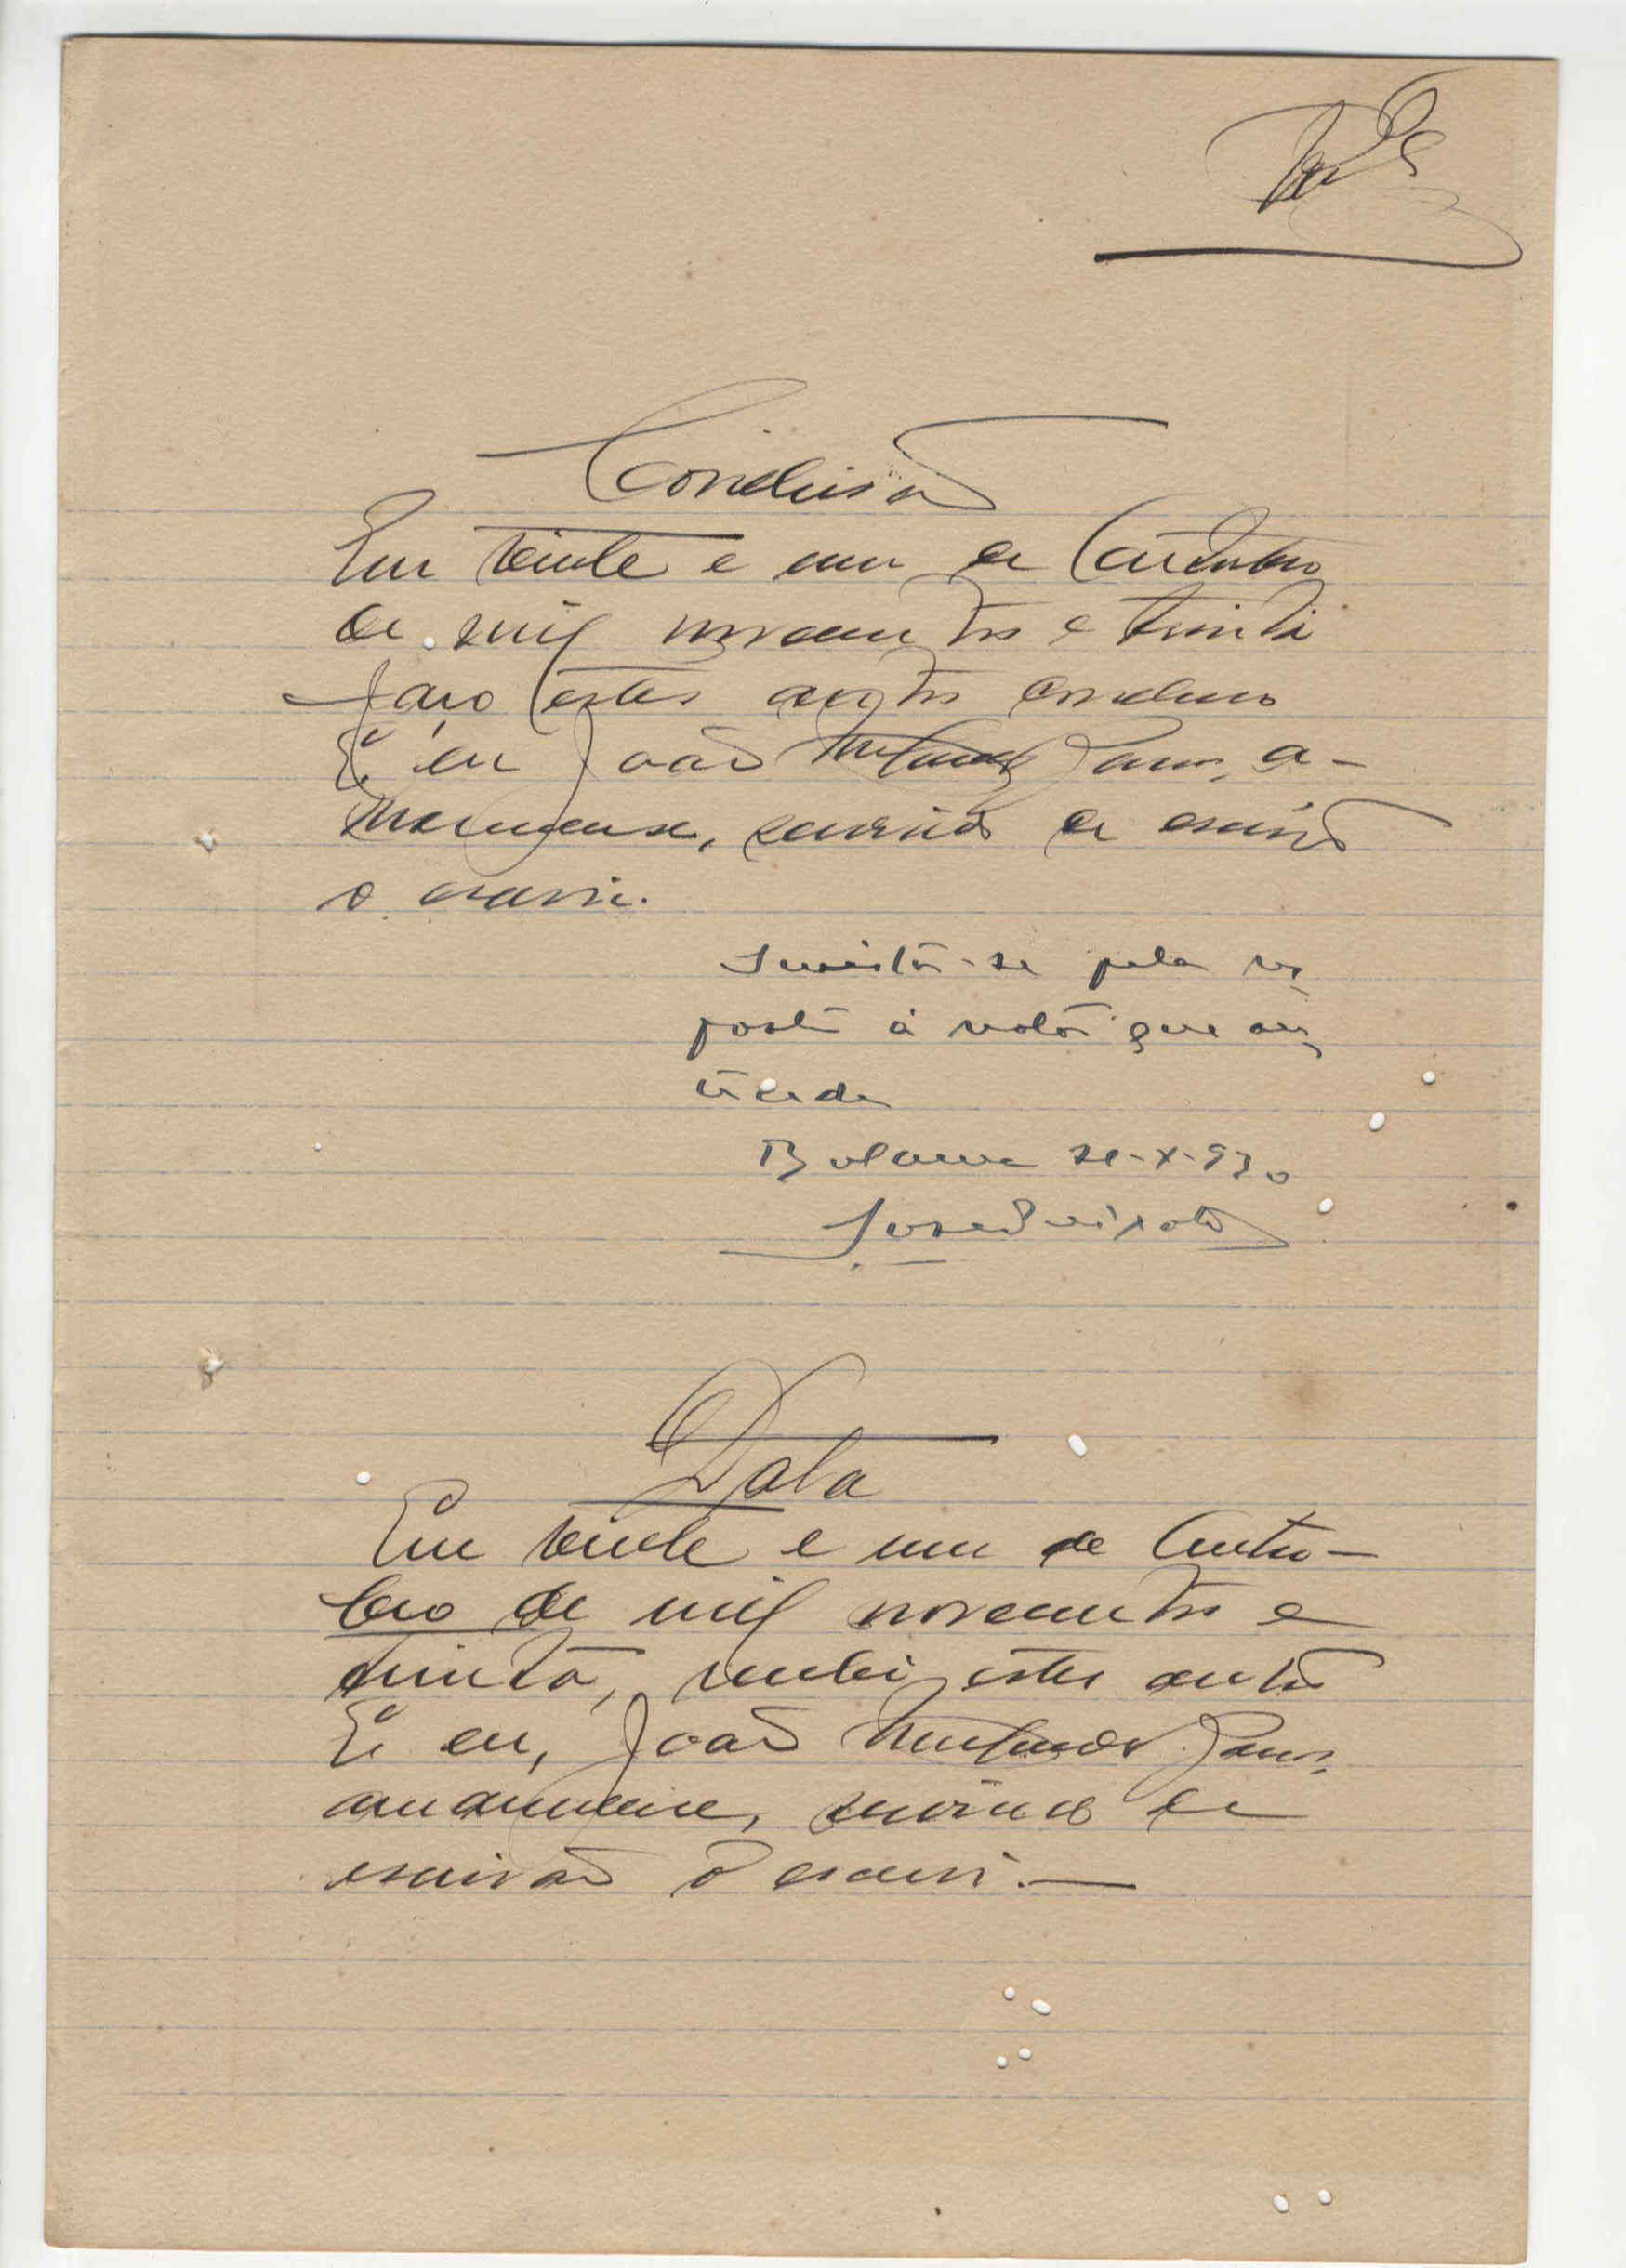 Conclusão
Em vinte e um de Outubro
de mil novecentos e trinta
faço estes autos conclusos
E eu João a-
manuense, servindo de escrivão
o escrevi.
Insista-se pela res
posta á nota que an
tecede
Bolama 21-X-930
José Peixoto
Data
Em vinte e um de Outu-
bro de mil novecentos e
trinta, recebi estes autos
E eu, João
amanuense, servindo de
escrivão o escrevi.—